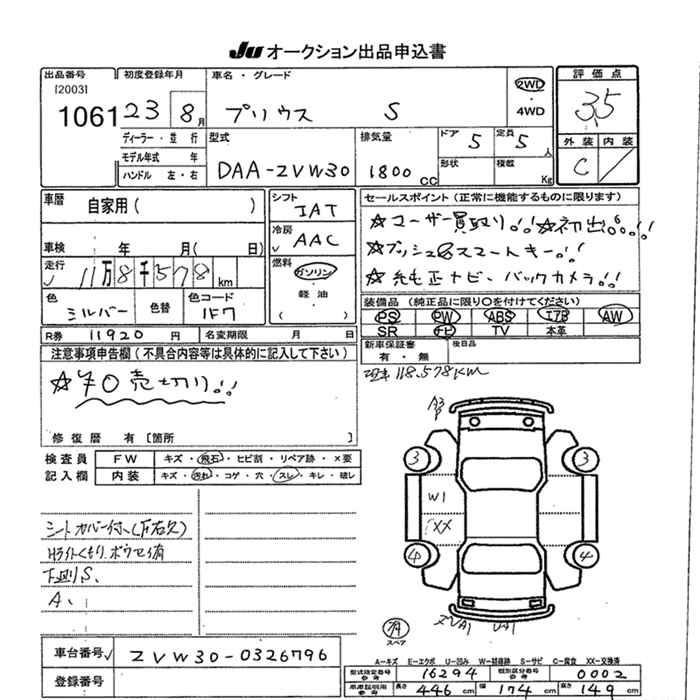 JU オークション出品申込書
出品番号 初度登録年月 車名・グレード 2WD 評価点
[2003] 1061 23 8月 プリウス S 4WD 3.5
ディーラー・並行 型式 排気量 ドア 定員 外装 内装
モデル年式 年 DAA-ZVW30 1800cc 5 5人 C
ハンドル 左・右 形状 積載 Kg
車歴 自家用( ) シフト IAT セールスポイント(正常に機能するものに限ります)
冷房 AAC ☆ユーザー買取り!!☆初出。!!
車検 年 月( 日) ☆プッシュ&スマートキー!!
走行 11万8千578km 燃料 ガソリン ☆純正ナビ、バックカメラ!!
軽油
( )
色 シルバー 色替 色コード 1F7 装備品(純正品に限り○を付けてください)
PS PW ABS エアB AW
SR ナビ TV 本革
R券 11920円 名変期限 月 日 新車保証書 有・無 後日品
注意事項申告欄(不具合内容等は具体的に記入して下さい)
☆¥0売切り!!
現車118.578KM
修復歴 有 [箇所 ]
検査員 FW キズ・飛石・ヒビ割・リペア跡・×要
記入欄 内装 キズ・汚れ・コゲ・穴・スレ・キレ・破レ
A3
P
3 3
W1
XX
4 4
シートカバー付、
Hライトくもり、
下回りS、
A、
スペア
UA1
A-キズ E-エクボ U-凹み W-補修跡 S-サビ C-腐食 XX-交換済
車台番号 ZVW30-0326796
型式指定番号 参考 16294 類別区分番号 参考 0002
登録番号
長さ 446cm 幅 174cm 高さ 149cm